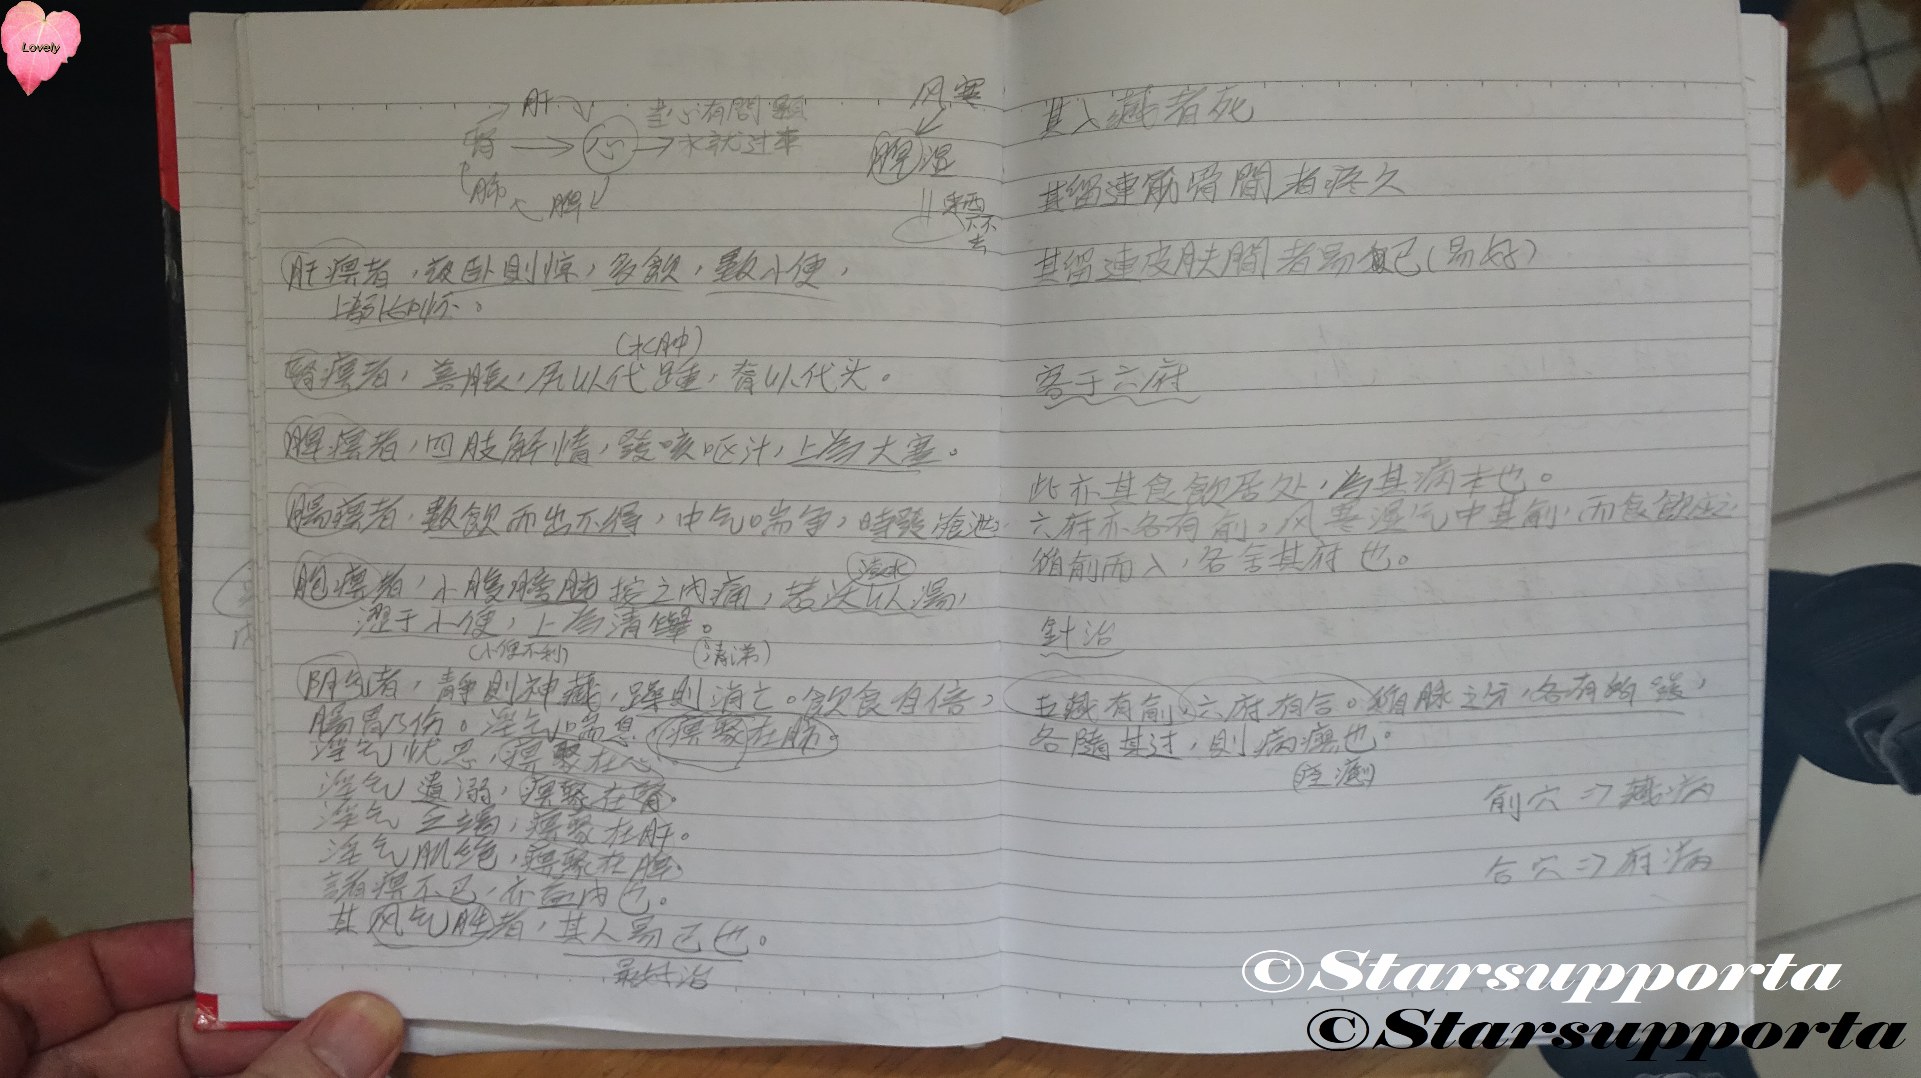 Lovely
肝
腎
心
當心有問題
水就过來
肺
脾
风寒
脾湿
去
肝痹者，夜卧則惊，多飲，數小便，
(水肿)
腎痹者，善脹，尻以代踵，脊以代头。
脾痹者，四肢解惰，發咳呕汁，上為大塞。
腸痹者，數飲而出不得，中气喘争，時發飧泄。
(清水)
胞痹者，小腹膀胱按之内痛，若沃以湯，
澀于小便，上為清
(小便不利)
(清涕)
阴气者，靜則神藏，躁則消亡。飲食自倍，
腸胃乃伤。淫气喘息，痹聚在肺。
淫气忧思，痹聚在心。
淫气遺溺，痹聚在腎。
淫气乏竭，痹聚在肝。
淫气肌绝，痹聚在脾。
諸痹不已，亦益内也。
其风气胜者，其人易已也。
其入藏者死
其留連筋骨間者疼久
其留連皮肤間者易已(易好)
客于六府
此亦其食飲居处，為其病本也。
六府亦各有俞。风寒湿气中其俞，而食飲应之
循俞而入，各舍其府也。
針治
五藏有俞，六府有合。循脉之分，各有所發，
各隨其过，則病瘳也。
俞穴⇒藏病
合穴⇒府病
©Starsupporta
©Starsupporta